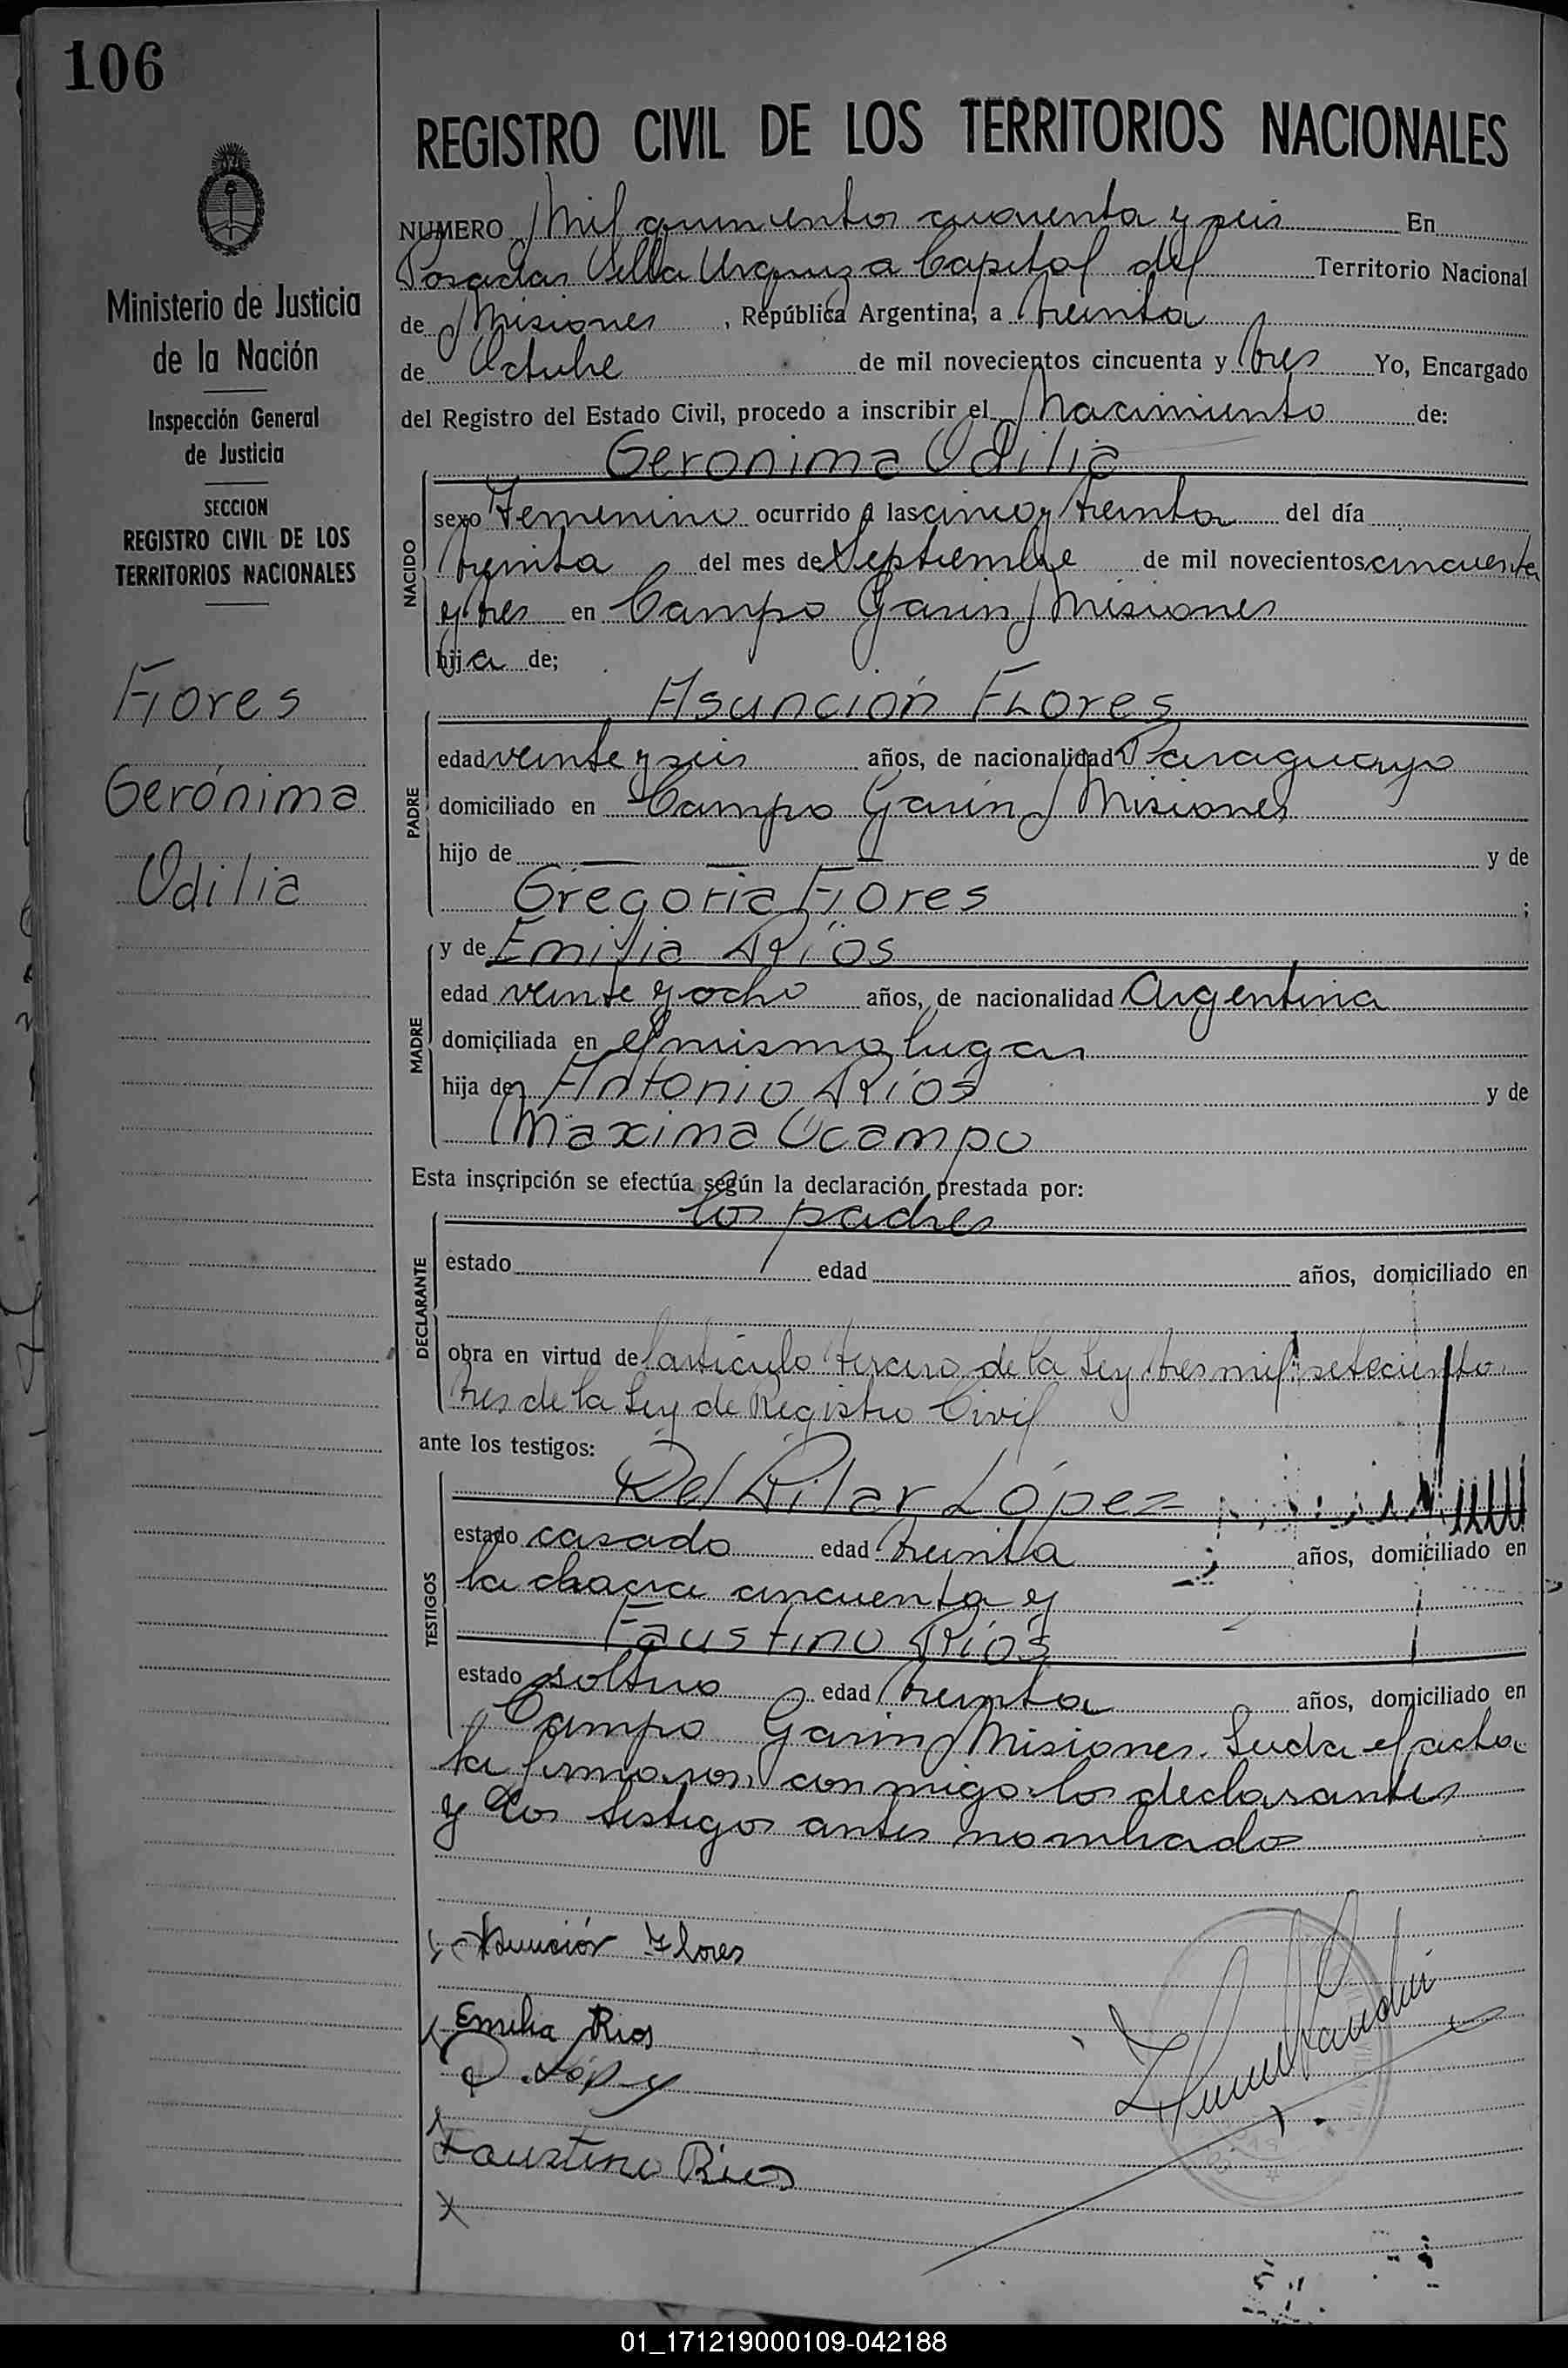 106
REGISTRO CIVIL DE LOS TERRITORIOS NACIONALES
Ministerio de Justicia
de la Nación
Inspección General
de Justicia
SECCION
REGISTRO CIVIL DE LOS
TERRITORIOS NACIONALES
Flores
Gerónima
Odilia
NUMERO Mil quinientos cuarenta y seis En
Posadas Villa Urquiza Capital del Territorio Nacional
de Misiones, República Argentina, a treinta
de Octubre de mil novecientos cincuenta y tres Yo, Encargado
del Registro del Estado Civil, procedo a inscribir el Nacimiento de:
Geronima Odilia
NACIDO
sexo Femenino ocurrido a las cinco y treinta del día
treinta del mes de Septiembre de mil novecientos cincuenta
y tres en Campo Garin Misiones
hija de;
Asunción Flores
PADRE
edad veinte y seis años, de nacionalidad Paraguayo
domiciliado en Campo Garin Misiones
hijo de — — — y de
Gregoria Flores ;
MADRE
y de Emilia Ríos
edad veinte y ocho años, de nacionalidad Argentina
domiciliada en el mismo lugar
hija de Antonio Ríos y de
Maxima Ocampo
Esta inscripción se efectúa según la declaración prestada por:
los padres
DECLARANTE
estado edad años, domiciliado en
obra en virtud del artículo tercero de la Ley tres mil setecientos
tres de la Ley de Registro Civil
ante los testigos:
Del Pilar López
TESTIGOS
estado casado edad treinta años, domiciliado en
la chacra cincuenta y
Faustino Ríos
estado soltero edad treinta años, domiciliado en
Campo Garin Misiones. Leida el acta
la firmaron, con migo los declarantes
y los testigos antes nombrados
Asunción Flores
Emilia Rios
P. López
Faustino Rios
01_171219000109-042188